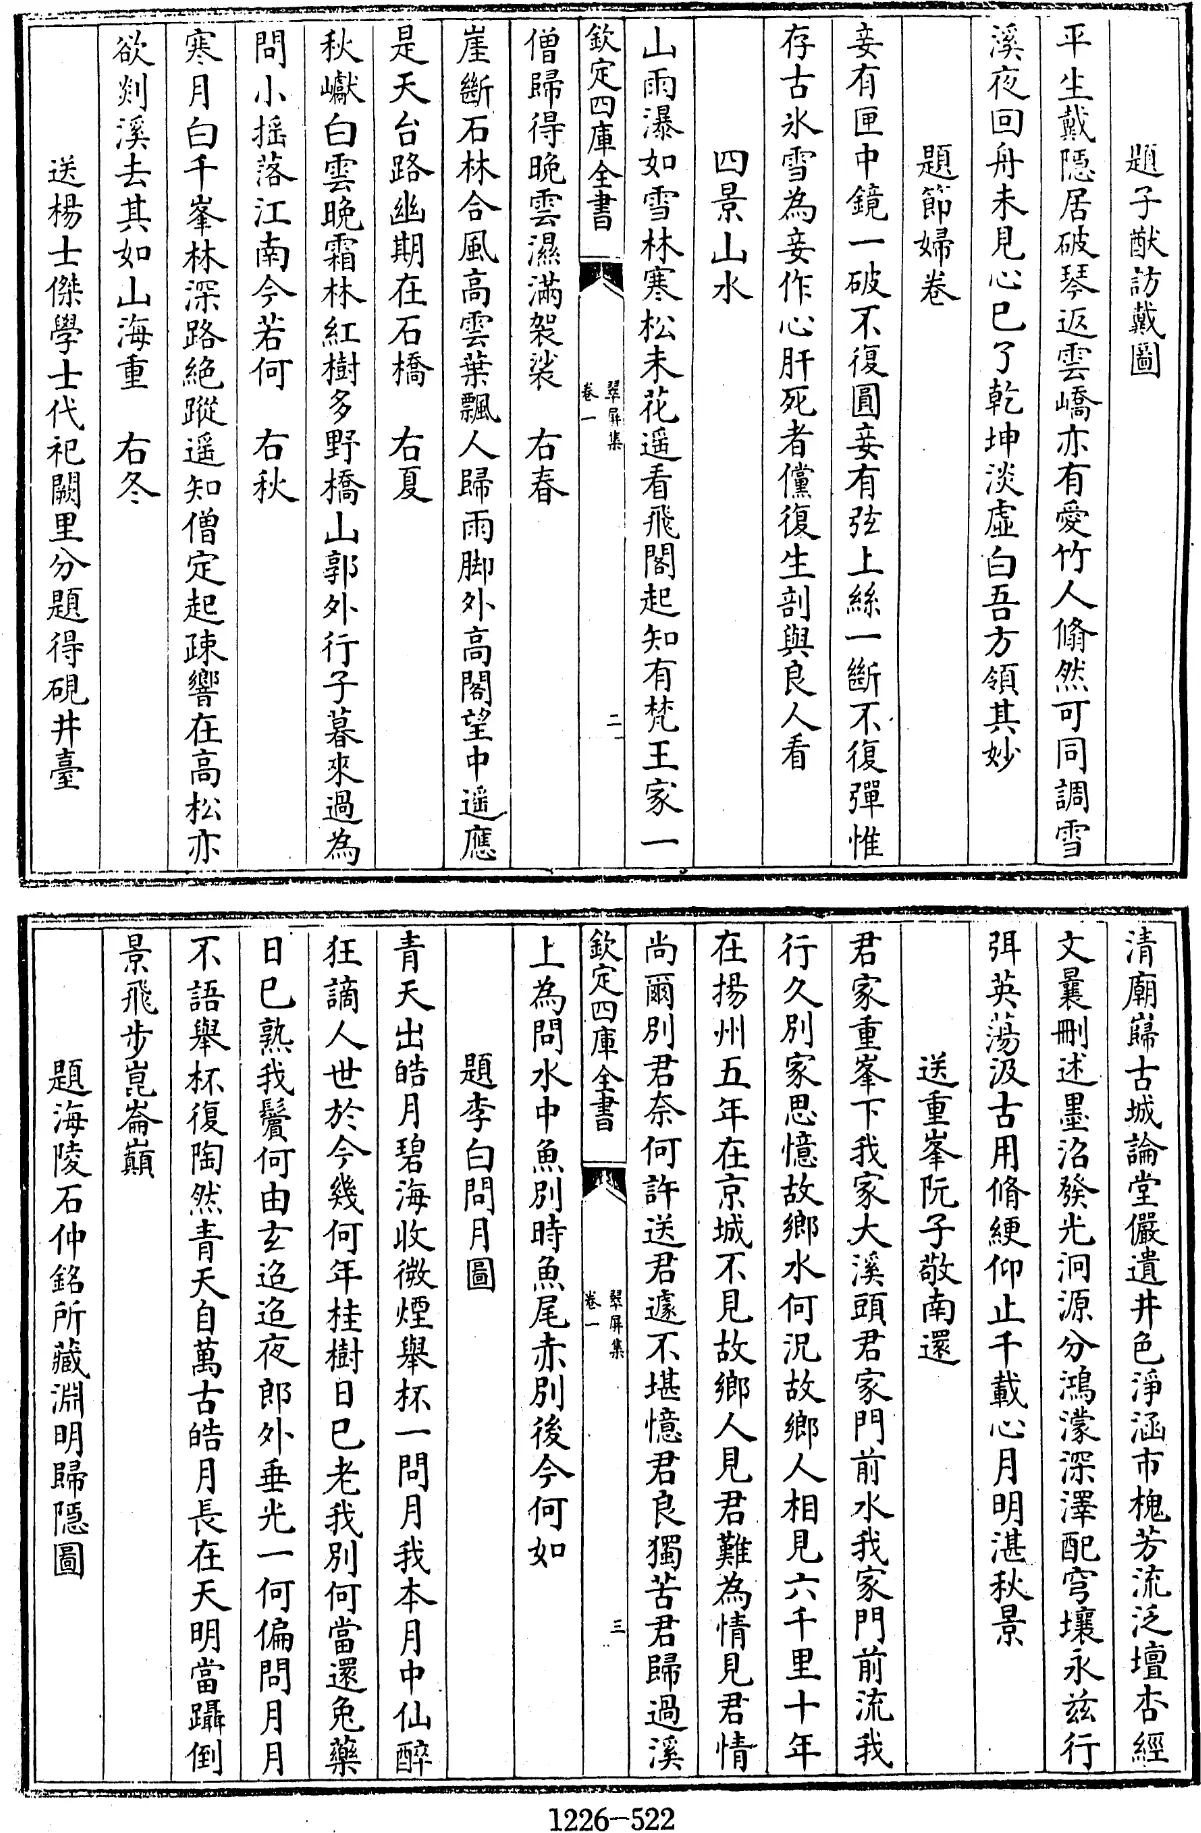 題子猷訪戴圖
平生戴隠居破琴返雲嶠亦有愛竹人翛然可同調雪
溪夜回舟未見心已了乾坤淡虛白吾方領其妙
題節婦卷
妾有匣中鏡一破不復圓妾有弦上絲一斷不復彈惟
存古氷雪為妾作心肝死者儻復生剖與良人看
四景山水
山雨瀑如雪林寒松未花遥看飛閣起知有梵王家一
欽定四庫全書
翠屏集
卷一
二
僧歸得晚雲濕滿袈裟 右春
崖斷石林合風高雲葉飄人歸雨脚外高閣望中遥應
是天台路幽期在石橋 右夏
秋巘白雲晚霜林紅樹多野橋山郭外行子暮來過為
問小摇落江南今若何 右秋
寒月白千峯林深路絶蹤遥知僧定起踈響在高松亦
欲剡溪去其如山海重 右冬
送楊士傑學士代祀闕里分題得硯井臺
清廟巋古城論堂儼遺井色淨涵市槐芳流泛壇杏經
文曩刪述墨沼發光泂源分鴻濛深澤配穹壤永兹行
弭英蕩汲古用脩綆仰止千載心月明湛秋景
送重峯阮子敬南還
君家重峯下我家大溪頭君家門前水我家門前流我
行久別家思憶故鄉水何況故鄉人相見六千里十年
在揚州五年在京城不見故鄉人見君難為情見君情
尚爾別君奈何許送君遽不堪憶君良獨苦君歸過溪
欽定四庫全書
翠屏集
卷一
三
上為問水中魚別時魚尾赤別後今何如
題李白問月圖
青天出皓月碧海收微煙舉杯一問月我本月中仙醉
狂謫人世於今幾何年桂樹日已老我別何當還兔藥
日已熟我鬢何由玄迢迢夜郎外垂光一何偏問月月
不語舉杯復陶然青天自萬古皓月長在天明當躡倒
景飛步崑崙巔
題海陵石仲銘所藏淵明歸隠圖
1226-522